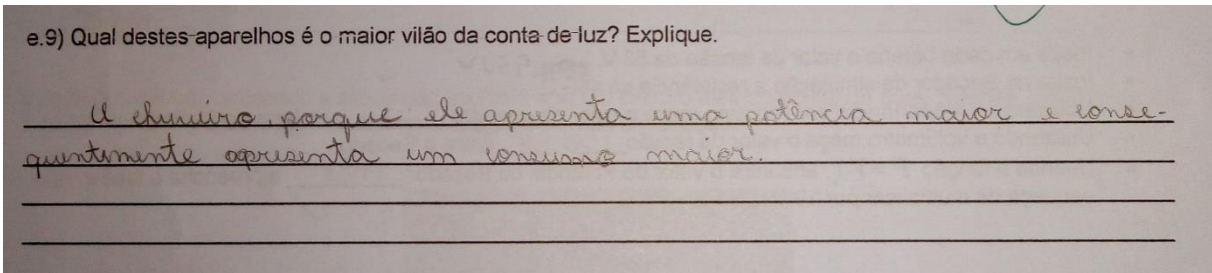 e.9) Qual destes aparelhos é o maior vilão da conta de luz? Explique.
O chuveiro, porque ele apresenta uma potência maior e conse-
quentemente apresenta um consumo maior.